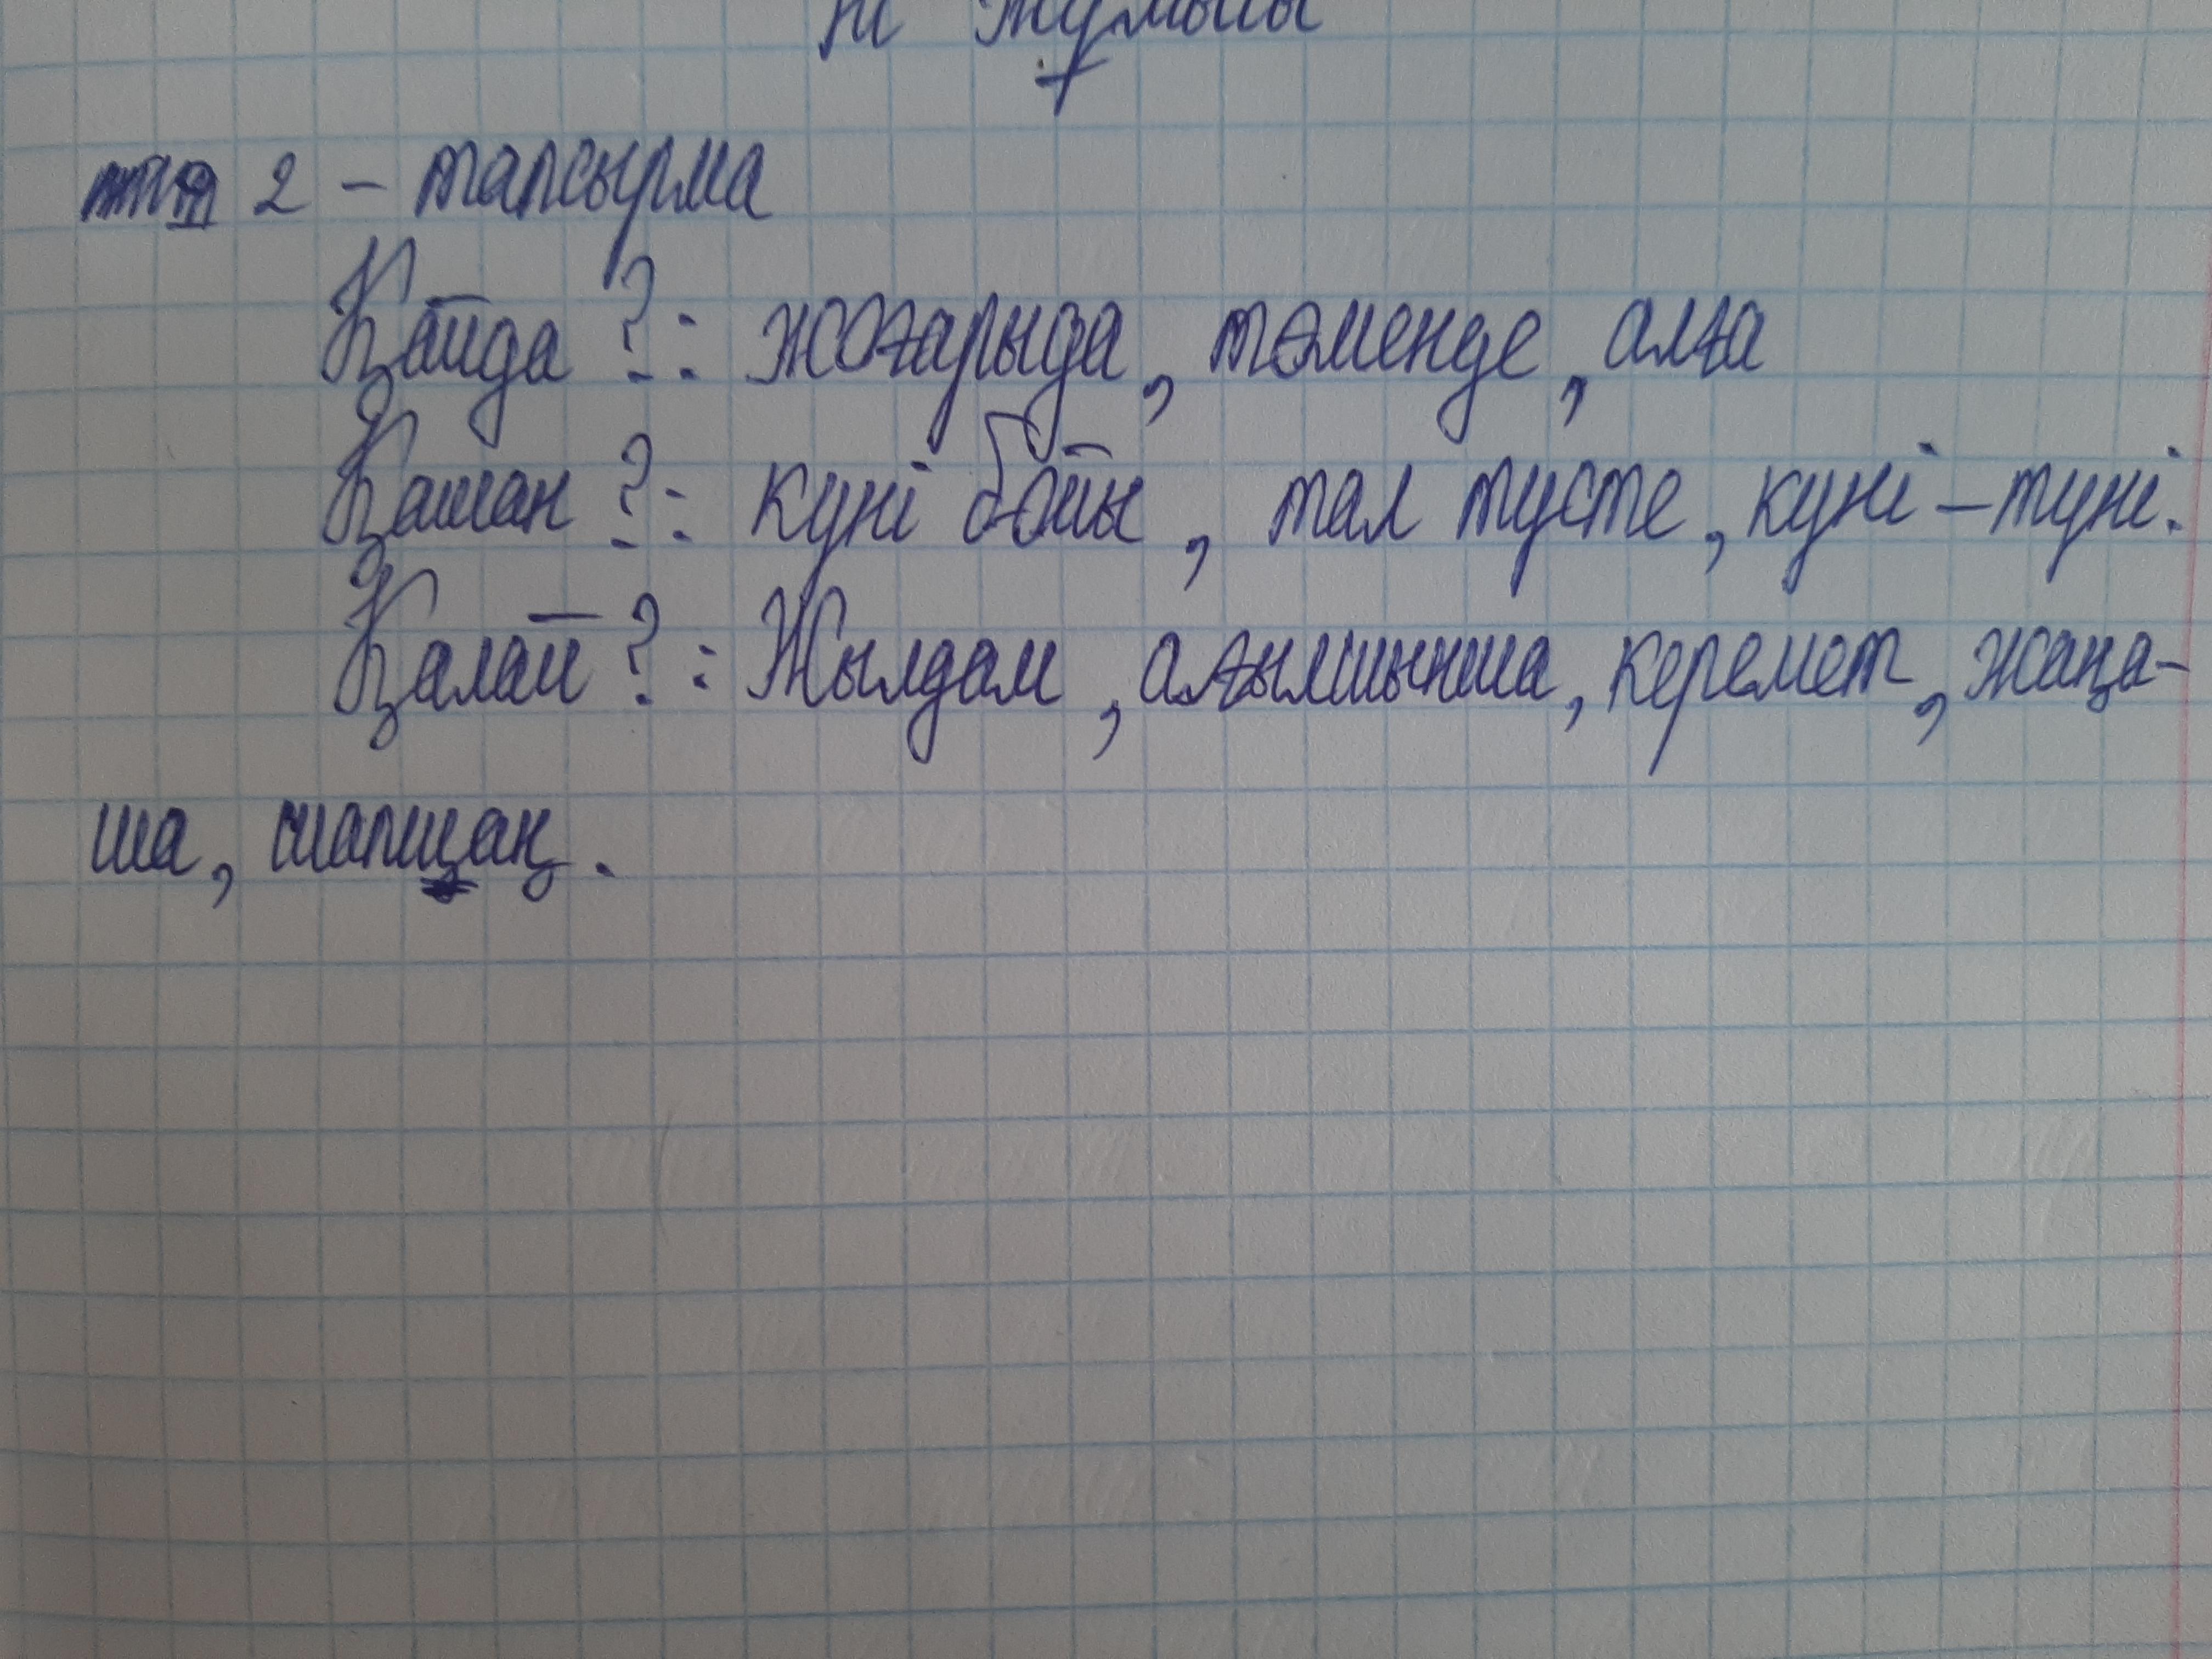 жұмысы
2 - тапсырма
Қайда?: жоғарыда, төменде, алға
Қашан?: күні бойы, тал түсте, күні-түні.
Қалай?: Жылдам, ағылшынша, керемет, жаңа-
ша, шапшаң.